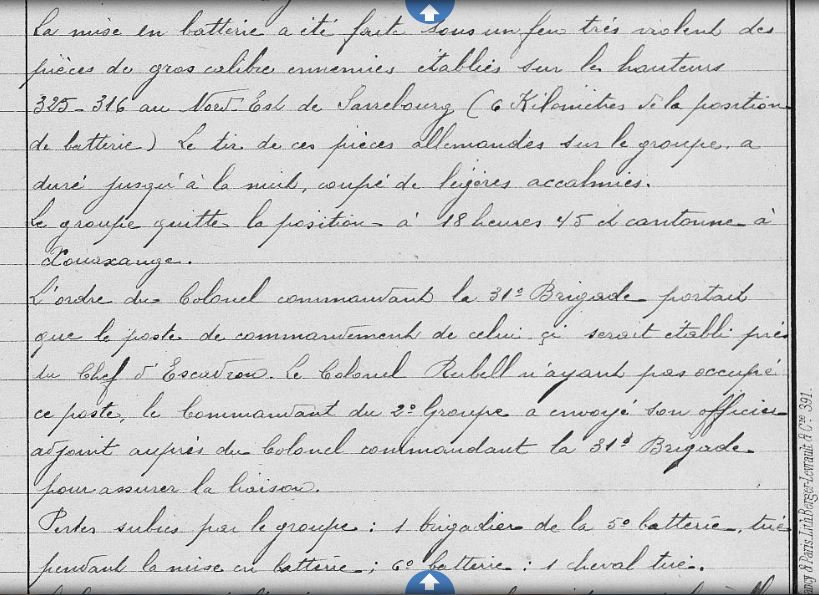 La mise en batterie a été faite sous un feu très violent des
pièces de gros calibre ennemies établies sur les hauteurs
325-316 au Nord-Est de Sarrebourg (6 Kilomètres de la position
de batterie) Le tir de ces pièces allemandes sur le groupe a
duré jusqu'à la nuit, coupé de légères accalmies.
Le groupe quitte la position à 18 heures 45 et cantonne à
Xouaxange.
L'ordre du Colonel commandant la 31e Brigade portait
que le poste de commandement de celui çi serait établi près
du Chef d'Escadron. Le Colonel Rubell n'ayant pas occupé
ce poste, le Commandant du 2e Groupe a envoyé son officier
adjoint auprès du Colonel commandant la 31e Brigade
pour assurer la liaison.
Pertes subies par le groupe : 1 brigadier de la 5e batterie, tué
pendant la mise en batterie ; 6e batterie : 1 cheval tué.
Nancy & Paris. Lith. Berger-Levrault & Cie 391.